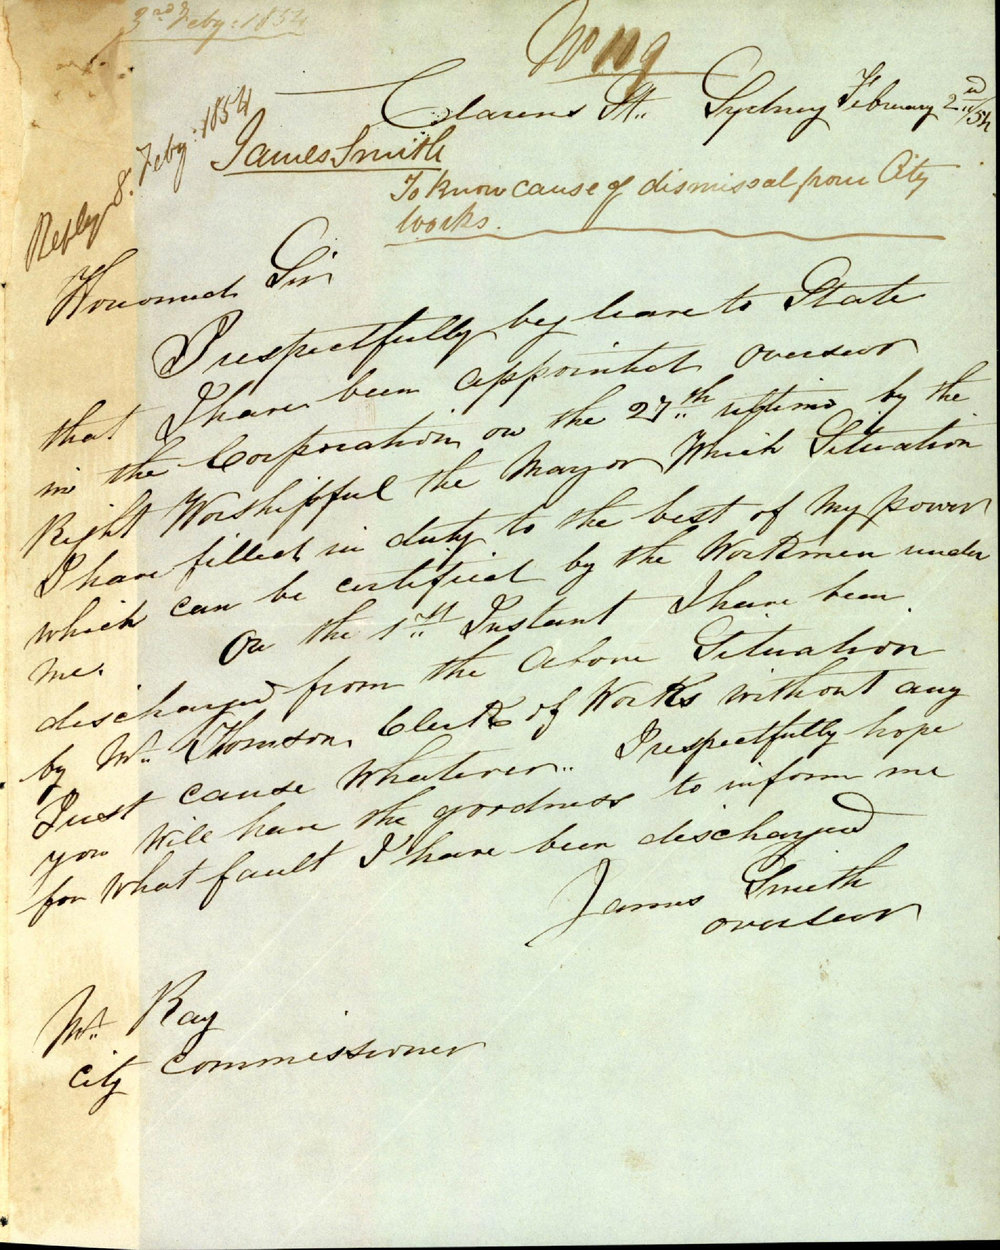 3rd Feby: 1854
No 119
Clarence St. Sydney February 2nd/54
Reply 8. Feby: 1854
James Smith
To know cause of dismissal from City
Works.
Honoured Sir
I respectfully beg leave to State
that I have been appointed overseer
in the Corporation on the 27th ultimo by the
Right Worshipful the Mayor Which Situation
I have filled in duty to the best of my power
which can be certified by the Workmen under
me. On the 1st Instant I have been
discharged from the Above Situation
by Mr. Thomson Clerk of Works without any
Just cause Whatever.. I respectfully hope
you Will have the goodness to inform me
for What fault I have been discharged
James Smith
overseer
Mr. Ray
City Commissioner